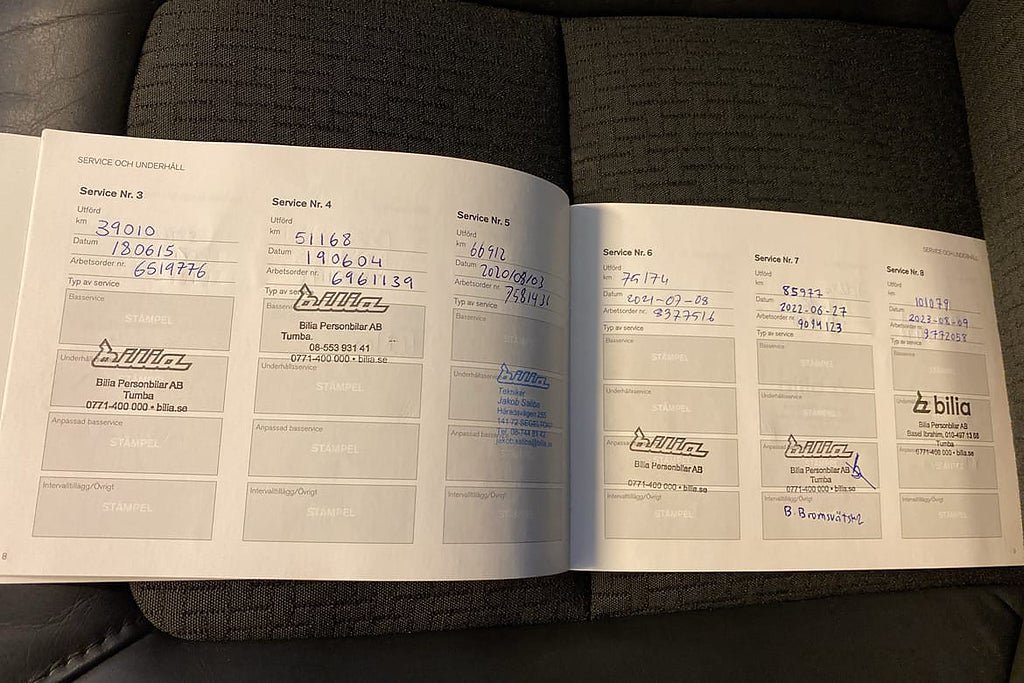 SERVICE OCH UNDERHÅLL
Service Nr. 3
Utförd
km 39010
Datum 180615
Arbetsorder nr. 6519776
Typ av service
Basservice
STÄMPEL
Underhåll
bilia
Bilia Personbilar AB
Tumba
0771-400 000 • bilia.se
Anpassad basservice
STÄMPEL
Intervalltillägg/Övrigt
STÄMPEL
8
Service Nr. 4
Utförd
km 51168
Datum 190604
Arbetsorder nr. 6961139
Typ av service
Basservice
bilia
Bilia Personbilar AB
Tumba.
08-553 931 41
0771-400 000 • bilia.se
Underhållsservice
STÄMPEL
Anpassad basservice
STÄMPEL
Intervalltillägg/Övrigt
STÄMPEL
Service Nr. 5
Utförd
km 66912
Datum 2020/08/03
Arbetsorder nr. 7581431
Typ av service
Basservice
STÄMPEL
Underhållsservice
bilia
Tekniker
Jakob Saliba
Häradsvägen 255
141 72 SEGELTORP
Anpassad basservice
Intervalltillägg/Övrigt
SERVICE OCH UNDERHÅLL
Service Nr. 6
Utförd
km 75174
Datum 2021-07-08
Arbetsorder nr. 8377516
Typ av service
Basservice
STÄMPEL
Underhållsservice
STÄMPEL
bilia
Bilia Personbilar AB
0771-400 000 • bilia.se
Intervalltillägg/Övrigt
STÄMPEL
Service Nr. 7
Utförd
km 85977
Datum 2022-06-27
Arbetsorder nr. 9094123
Typ av service
Basservice
STÄMPEL
Underhållsservice
STÄMPEL
bilia
Bilia Personbilar AB
Tumba
0771-400 000 • bilia.se
Intervalltillägg/Övrigt
B. Bromsvätska
Service Nr. 8
Utförd
km 101079
Datum 2023-08-09
Arbetsorder nr. 9772058
Typ av service
Basservice
STÄMPEL
bilia
Bilia Personbilar AB
Basel Ibrahim, 010-497 13 68
Tumba
0771-400 000 • bilia.se
STÄMPEL
Intervalltillägg/Övrigt
STÄMPEL
9